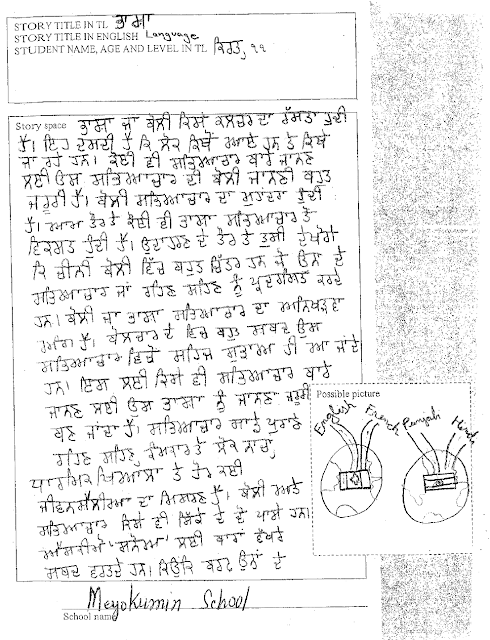 STORY TITLE IN TL ਭਾਸ਼ਾ
STORY TITLE IN ENGLISH Language
STUDENT NAME, AGE AND LEVEL IN TL ਕਿਰਤ, ੧੧
Story space ਭਾਸ਼ਾ ਜਾਂ ਬੋਲੀ ਕਿਸੇ ਕਲਚਰ ਦਾ ਰੱਸਤਾ ਹੁੰਦੀ
ਹੈ। ਇਹ ਦਸਦੀ ਹੈ ਕਿ ਲੋਕ ਕਿਥੋਂ ਆਏ ਹਨ ਤੇ ਕਿਥੇ
ਜਾ ਰਹੇ ਹਨ। ਕੋਈ ਵੀ ਸਭਿਆਚਾਰ ਬਾਰੇ ਜਾਨਣ
ਲਈ ਉਸ ਸਭਿਆਚਾਰ ਦੀ ਬੋਲੀ ਜਾਨਣੀ ਬਹੁਤ
ਜ਼ਰੂਰੀ ਹੈ। ਬੋਲੀ ਸਭਿਆਚਾਰ ਦਾ ਮੁਹਾਂਦਰਾ ਹੁੰਦੀ
ਹੈ। ਆਮ ਤੌਰ ਤੇ ਕੋਈ ਵੀ ਭਾਸ਼ਾ ਸਭਿਆਚਾਰ ਤੋਂ
ਵਿਕਸਤ ਹੁੰਦੀ ਹੈ। ਉਦਾਹਰਣ ਦੇ ਤੌਰ ਤੇ ਤੁਸੀਂ ਦੇਖੋਗੇ
ਕਿ ਚੀਨੀ ਬੋਲੀ ਵਿੱਚ ਬਹੁਤ ਚਿੱਤਰ ਹਨ ਜੋ ਉਨਾਂ ਦੇ
ਸਭਿਆਚਾਰ ਜਾਂ ਰਹਿਣ ਸਹਿਣ ਨੂੰ ਪ੍ਰਦਰਸ਼ਿਤ ਕਰਦੇ
ਹਨ। ਬੋਲੀ ਜਾਂ ਭਾਸ਼ਾ ਸਭਿਆਚਾਰ ਦਾ ਅਨਿਖੜਵਾਂ
ਅੰਗ ਹੈ। ਬੋਲਚਾਰ ਦੇ ਵਿਚ ਬਹੁਤ ਸ਼ਬਦ ਉਸ
ਸਭਿਆਚਾਰ ਵਿਚੋਂ ਸਹਿਜ ਸੁਭਾਅ ਹੀ ਆ ਜਾਂਦੇ
ਹਨ। ਇਸ ਲਈ ਕਿਸੇ ਵੀ ਸਭਿਆਚਾਰ ਬਾਰੇ
ਜਾਨਣ ਲਈ ਉਸ ਭਾਸ਼ਾ ਨੂੰ ਜਾਨਣਾ ਜ਼ਰੂਰੀ
ਬਣ ਜਾਂਦਾ ਹੈ। ਸਭਿਆਚਾਰ ਸਾਡੇ ਪੁਰਾਣੇ
ਰਹਿਣ ਸਹਿਣ, ਤਿਓਹਾਰ ਤੇ ਲੋਕ ਨਾਚ,
ਧਾਰਮਿਕ ਖਿਆਲਾ ਤੇ ਹੋਰ ਕਈ
ਦਾ ਮਿਸ਼ਰਣ ਹੈ। ਬੋਲੀ ਅਤੇ
ਸਭਿਆਚਾਰ ਕਿਸੇ ਵੀ ਸਿੱਕੇ ਦੇ ਦੋ ਪਾਸੇ ਹਨ।
ਲਈ ਬਾਰਾਂ ਵੱਖਰੇ
ਸ਼ਬਦ ਵਰਤਦੇ ਹਨ। ਕਿਉਂਕਿ ਬਰਫ਼ ਉਨਾਂ ਦੇ
Possible picture
English French Punjabi Hindi
Meyokumin School
School name